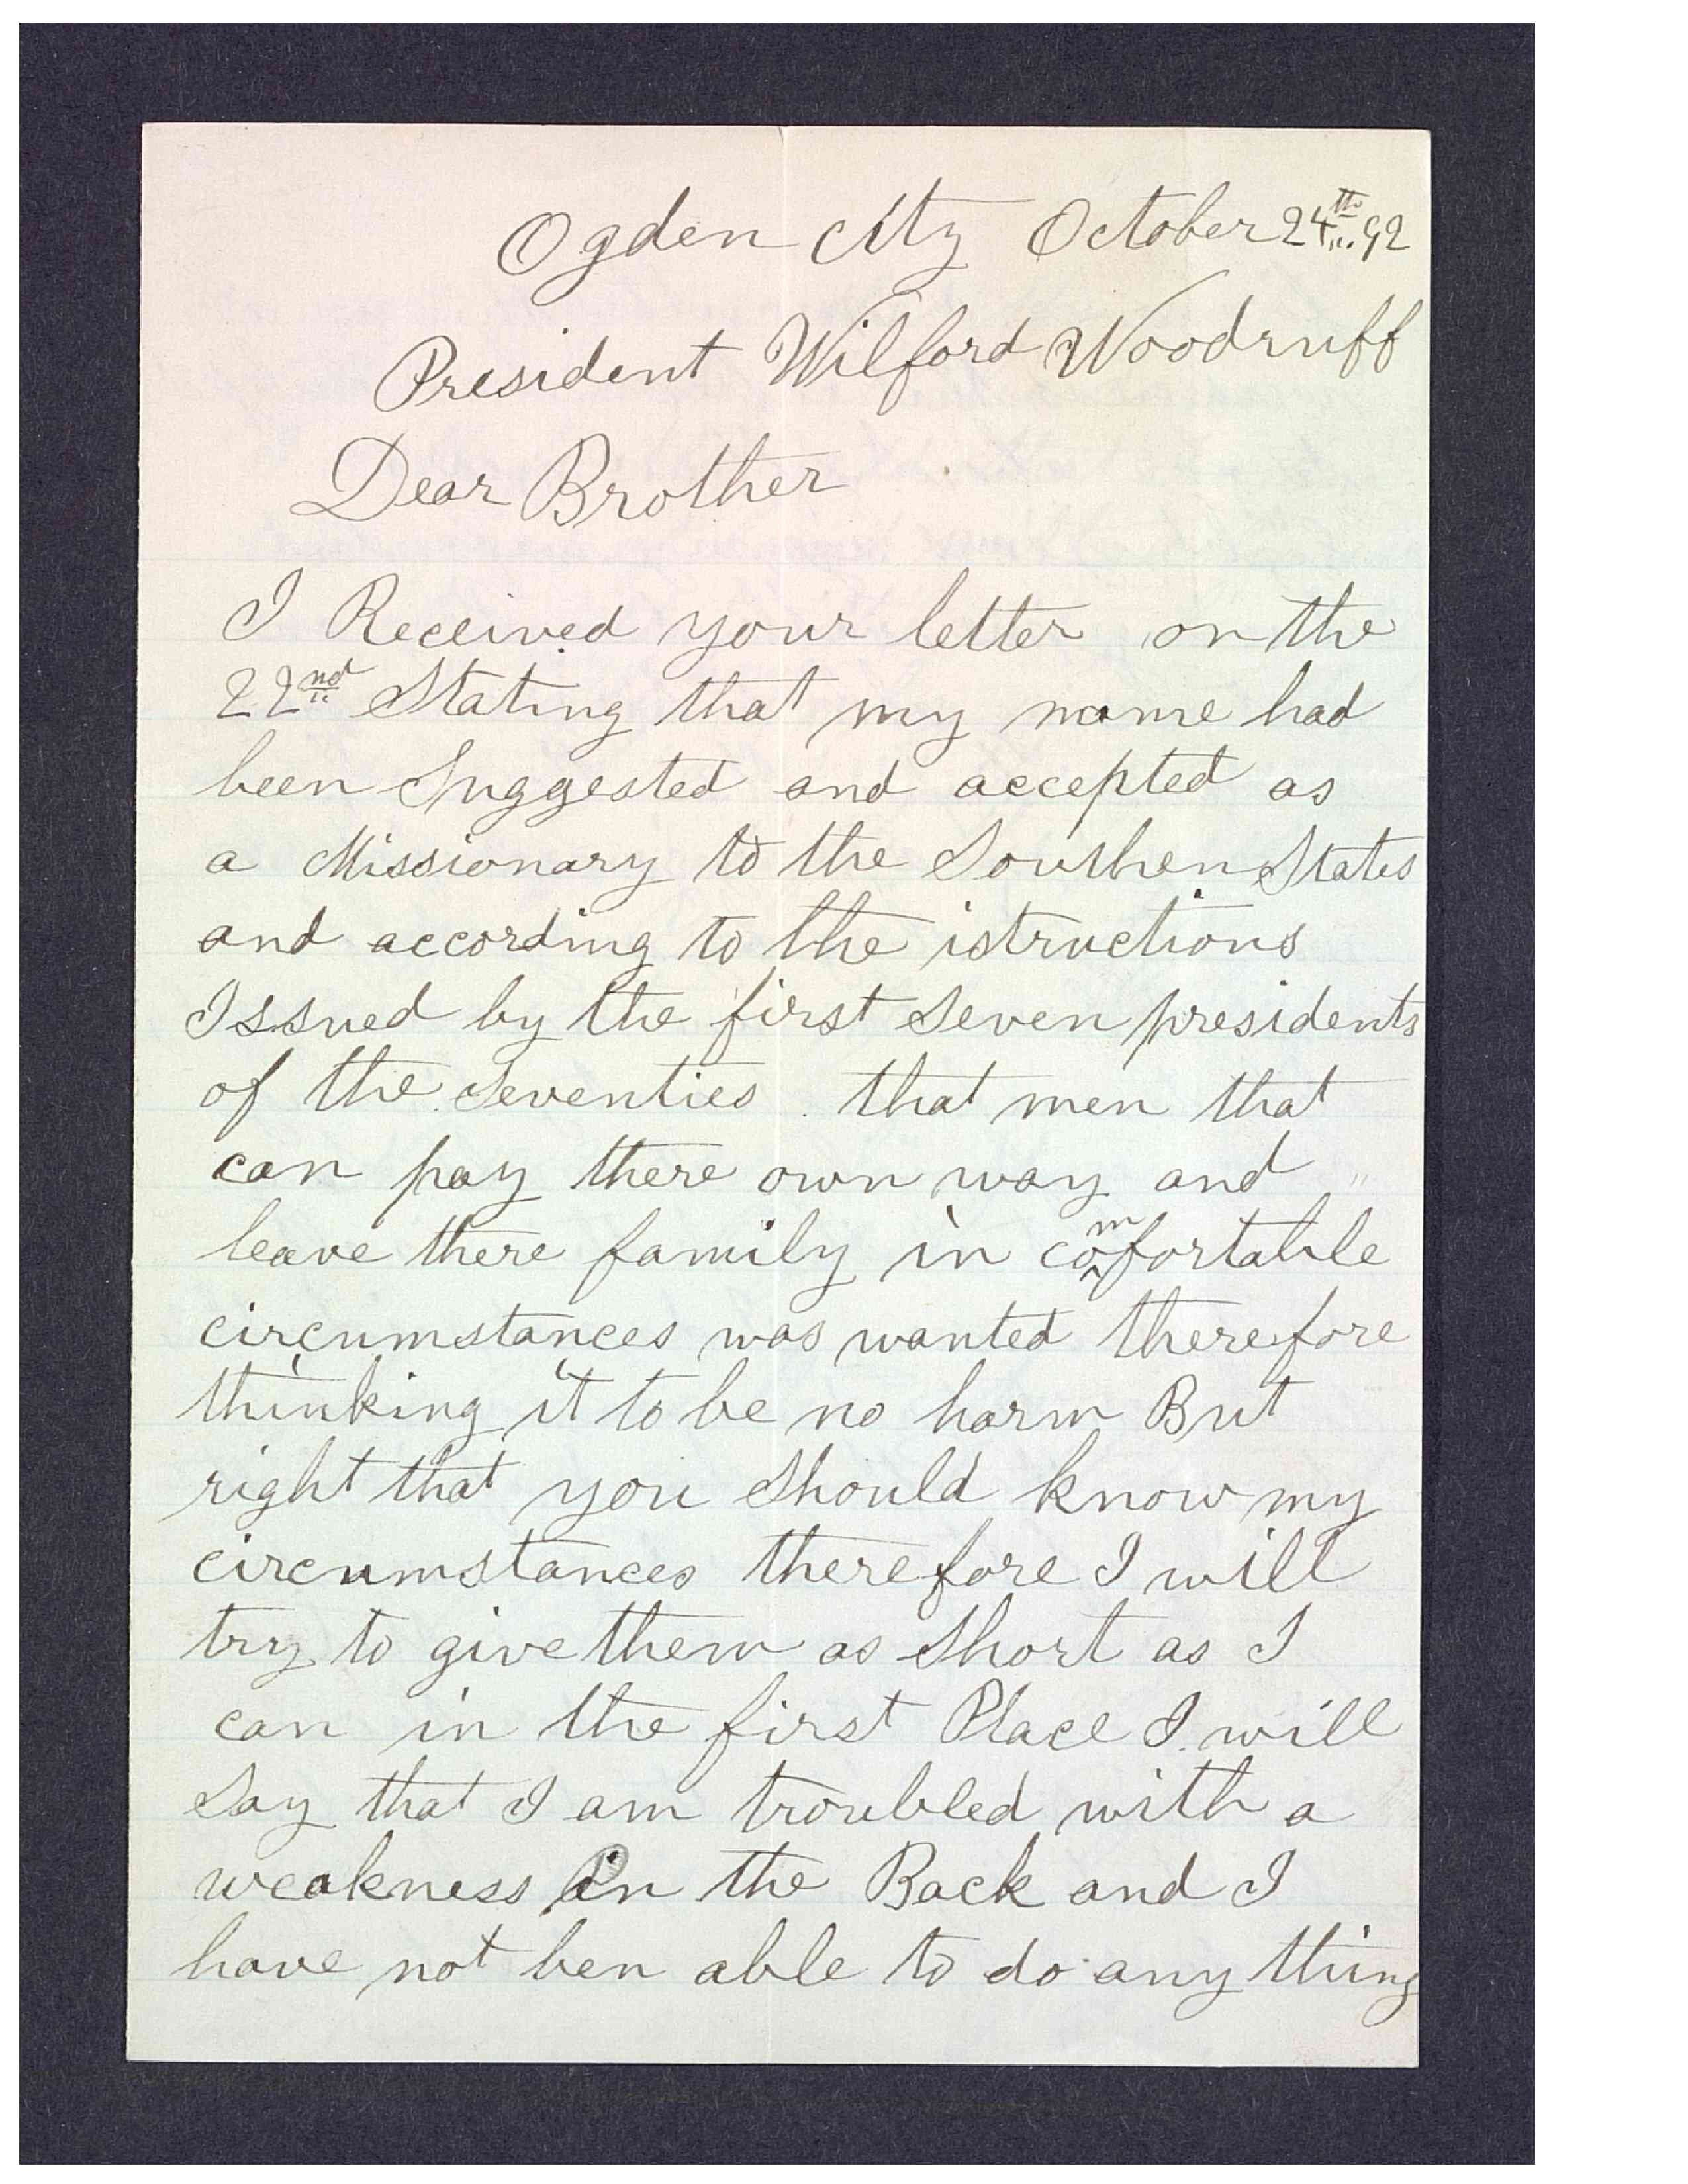 Ogden City October 24th 92
President Wilford Woodruff
Dear Brother
I Received your letter on the
22nd Stating that my name had
been Suggested and accepted as
a Missionary to the Southen States
and according to the istructions
Issued by the first Seven presidents
of the Seventies . that men that
can pay there own way and
leave there family in comfortable
circumstances was wanted therefore
thinking it to be no harm But
right that you Should know my
circumstances therefore I will
try to give them as Short as I
can in the first Place I will
Say that I am troubled with a
weakness in the Back and I
have not ben able to do any thing